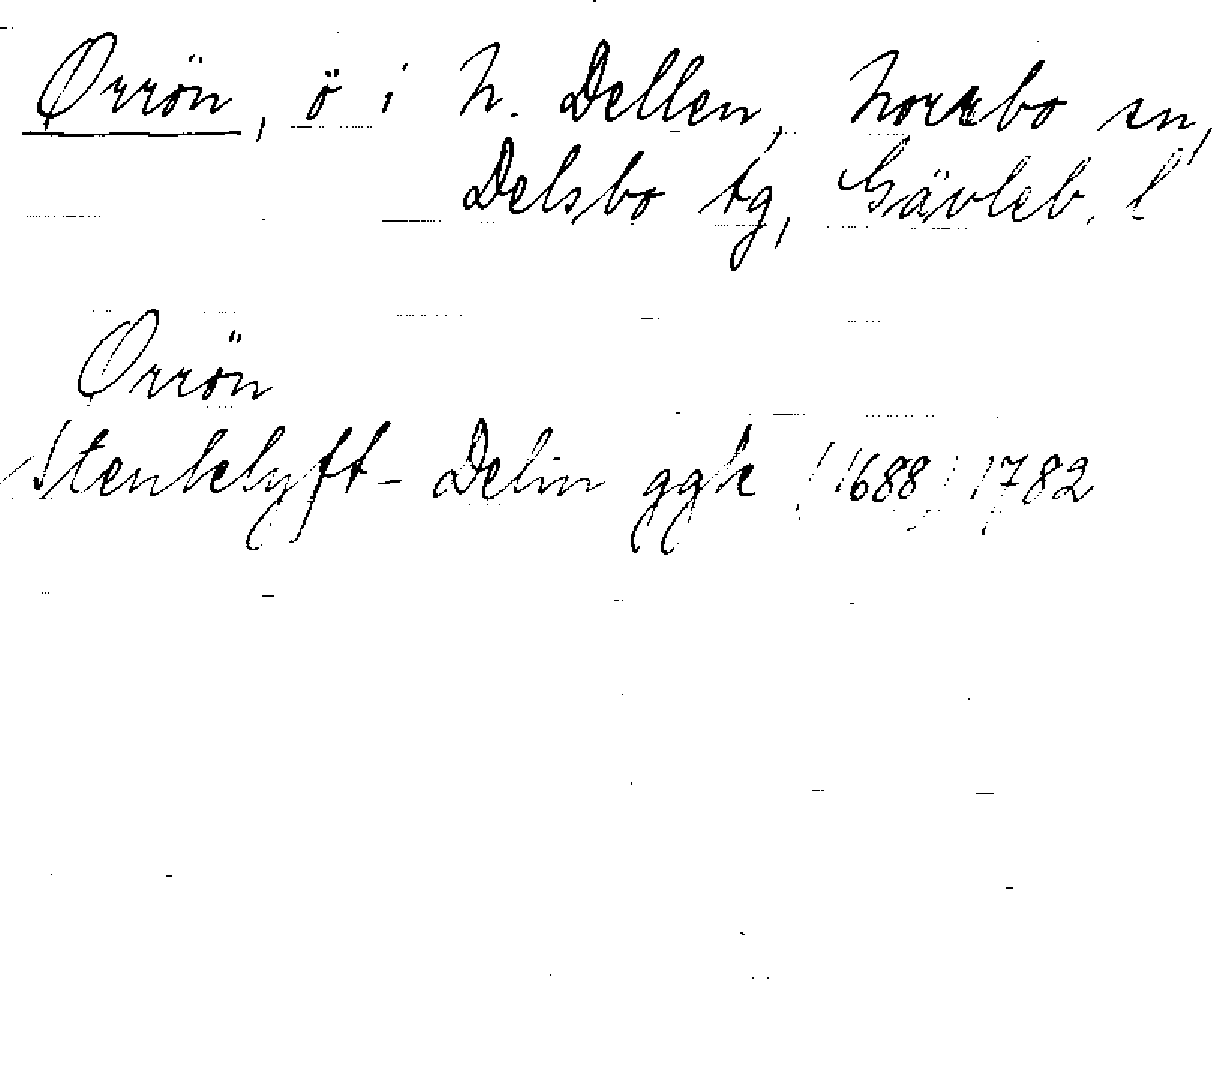 Orrön, ö i N. Dellen, Norrbo sn,
Delsbo tg, Gävleb. l
Orrön
Stenklyft-Delin ggk (1688) 1782